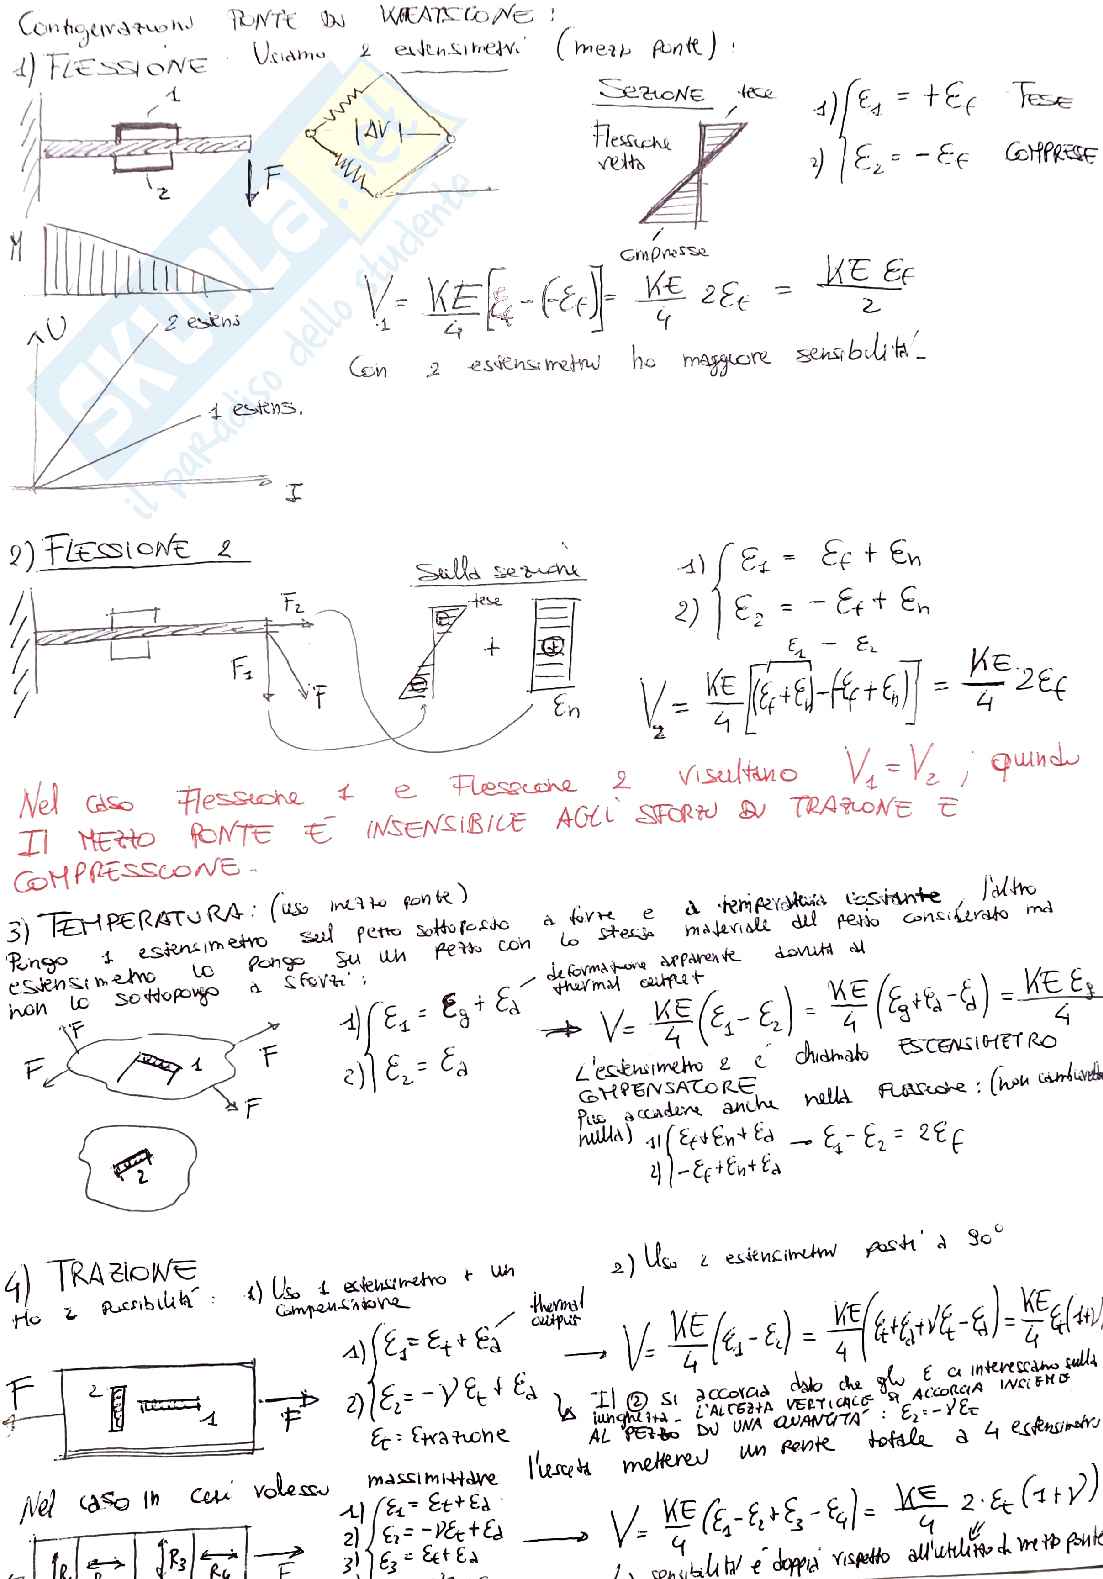 Configurazioni PONTE DI WHEATSTONE:
1) FLESSIONE Usiamo 2 estensimetri (mezzo ponte):
1
2
F
|ΔV|
SEZIONE tese
Flessione retta
compresse
1) { ε1 = +εf TESE
2) { ε2 = -εf COMPRESSE
M
V1 = KE/4 [εf - (-εf)] = KE/4 2εf = KE εf/2
Con 2 estensimetri ho maggiore sensibilità
U
2 estens.
1 estens.
I
SKUOLA.net
il paradiso dello studente
2) FLESSIONE 2
F2
F1
F
Sulla sezione
tese
+
εn
1) { ε1 = εf + εn
2) { ε2 = -εf + εn
ε1 - ε2
V2 = KE/4 [(εf + εn) - (-εf + εn)] = KE/4 · 2εf
Nel caso Flessione 1 e Flessione 2 risultano V1 = V2; quindi
Il MEZZO PONTE È INSENSIBILE AGLI SFORZI DI TRAZIONE E
COMPRESSIONE.
3) TEMPERATURA: (uso mezzo ponte)
Pongo 1 estensimetro sul pezzo sottoposto a forze e a temperatura costante, l'altro
estensimetro lo pongo su un pezzo con lo stesso materiale del pezzo considerato ma
non lo sottopongo a sforzi:
F
F
F
F
1
2
1) { ε1 = εg + εa
2) { ε2 = εa
deformazione apparente dovuta al
thermal output
→ V = KE/4 (ε1 - ε2) = KE/4 (εg + εa - εa) = KE εg/4
L'estensimetro 2 è chiamato ESTENSIMETRO
COMPENSATORE
Può accadere anche nella FLESSIONE: (non cambierebbe
nulla) 1) { εf + εn + εa → ε1 - ε2 = 2εf
2) { -εf + εn + εa
4) TRAZIONE
Ho 2 possibilità: 1) Uso 1 estensimetro + un
compensatore
2) Uso 2 estensimetri posti a 90°
F
2
1
F
1) { ε1 = εt + εa
thermal output
2) { ε2 = -νεt + εa
εt = εtrazione
→ V = KE/4 (ε1 - ε2) = KE/4 (εt + εa + νεt - εa) = KE/4 εt (1+ν)
Il ② si accorcia dato che gli ε ci interessano sulla
lunghezza. L'ALTEZZA VERTICALE SI ACCORCIA INSIEME
AL PEZZO DI UNA QUANTITÀ: ε2 = -νεt
Nel caso in cui volessi massimizzare l'uscita metterei un ponte totale a 4 estensimetri
R1
R3
R4
F
1) { ε1 = εt + εa
2) { ε2 = -νεt + εa
3) { ε3 = εt + εa
→ V = KE/4 (ε1 - ε2 + ε3 - ε4) = KE/4 2·εt (1+ν)
sensibilità è doppia rispetto all'utilizzo di mezzo ponte